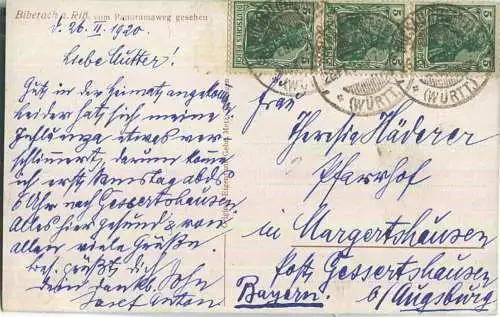 Biberach a. Riß, vom Panoramaweg gesehen
d. 26. II. 1920.
Liebe Mutter!
Gut in der Heimat angekom
Leider hat sich meine
Influenza etwas ver
schlimmert, darum komme
ich erst Samstag abds
6 Uhr nach Gessertshausen.
Alles hier gesund u. von
allen viele Grüße.
Bes. grüßt dich
dein dankb. Sohn
Josef Anton
5
5
5
(WÜRTT.)
(WÜRTT.)
Frau
Theresia Häderer
Pfarrhof
in Margertshausen
Post Gessertshausen
Bayern. b/Augsburg